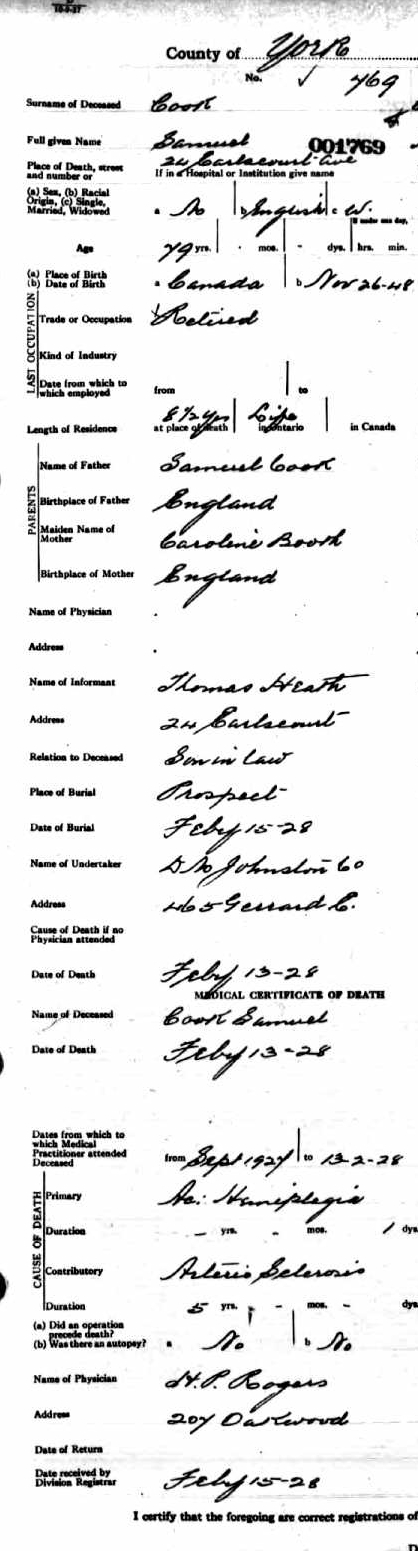 10-9-27
County of York
No. ✓ 769
Surname of Deceased Cook
Full given Name Samuel 001769
24 Earlscourt Ave
Place of Death, street and number or If in a Hospital or Institution give name
(a) Sex, (b) Racial Origin, (c) Single, Married, Widowed a M b English c W.
If under one day,
Age 79 yrs. - mos. - dys. hrs. min.
(a) Place of Birth a Canada
(b) Date of Birth b Nov 26-48
LAST OCCUPATION
Trade or Occupation Retired
Kind of Industry
Date from which to which employed from to
Length of Residence 8 1/2 yrs at place of death Life in Ontario in Canada
PARENTS
Name of Father Samuel Cook
Birthplace of Father England
Maiden Name of Mother Caroline Booth
Birthplace of Mother England
Name of Physician .
Address .
Name of Informant Thomas Heath
Address 24 Earlscourt
Relation to Deceased Son in law
Place of Burial Prospect
Date of Burial Feby 15-28
Name of Undertaker D M Johnston Co
Address 465 Gerrard E.
Cause of Death if no Physician attended
Date of Death Feby 13-28
MEDICAL CERTIFICATE OF DEATH
Name of Deceased Cook Samuel
Date of Death Feby 13-28
Dates from which to which Medical Practitioner attended Deceased from Sept 1927 to 13-2-28
CAUSE OF DEATH
Primary Ac: Hemiplegia
Duration - yrs. - mos. 1 dys
Contributory Arterio Sclerosis
Duration 5 yrs. - mos. - dys
(a) Did an operation precede death? a No
(b) Was there an autopsy? b No
Name of Physician H. P. Rogers
Address 207 Oakwood
Date of Return
Date received by Division Registrar Feby 15-28
I certify that the foregoing are correct registrations of